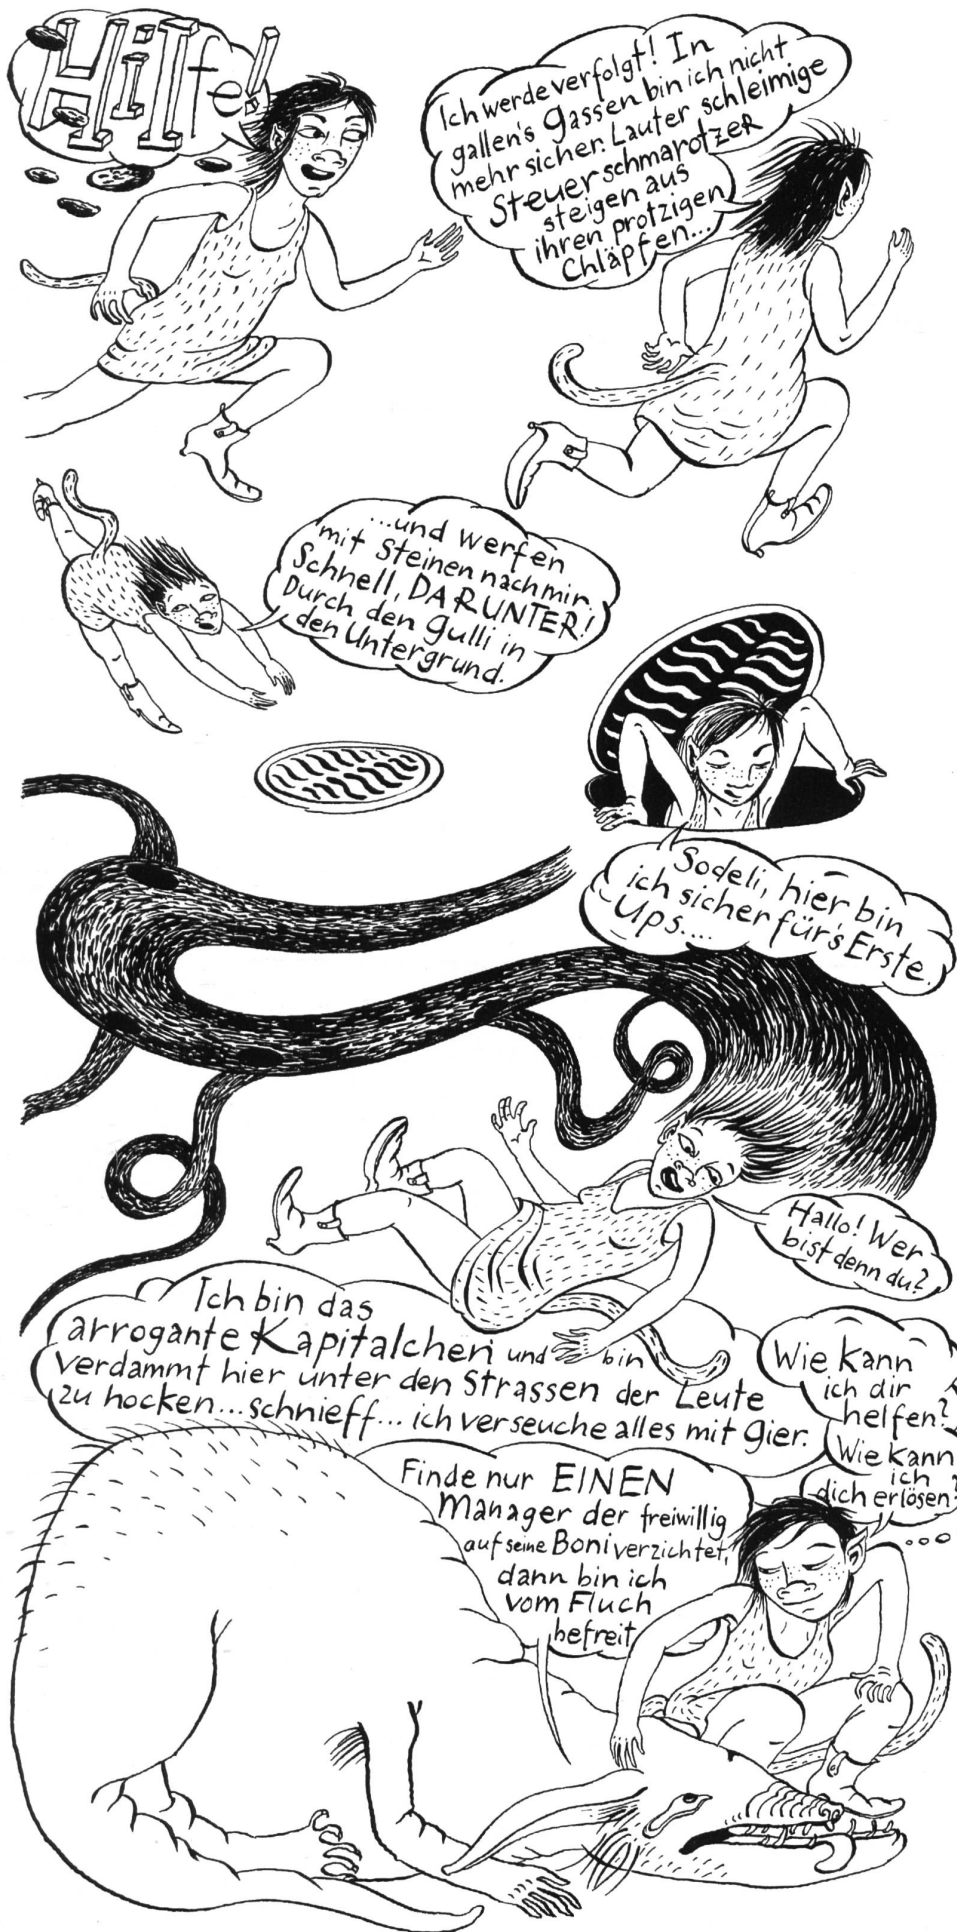 Hilfe!
Ich werde verfolgt! In
gallen's gassen bin ich nicht
mehr sicher. Lauter schleimige
Steuerschmarotzer
steigen aus
ihren protzigen
Chläpfen...
...und werfen
mit Steinen nach mir.
Schnell, DARUNTER!
Durch den gulli in
den Untergrund.
Sodeli, hier bin
ich sicher für's Erste.
Ups....
Hallo! Wer
bist denn du?
Ich bin das
arrogante Kapitalchen und bin
verdammt hier unter den Strassen der Leute
zu hocken...schnieff... ich verseuche alles mit gier.
Wie kann
ich dir
helfen?
Wie kann
ich
dich erlösen?
Finde nur EINEN
Manager der freiwillig
auf seine Boni verzichtet,
dann bin ich
vom Fluch
befreit